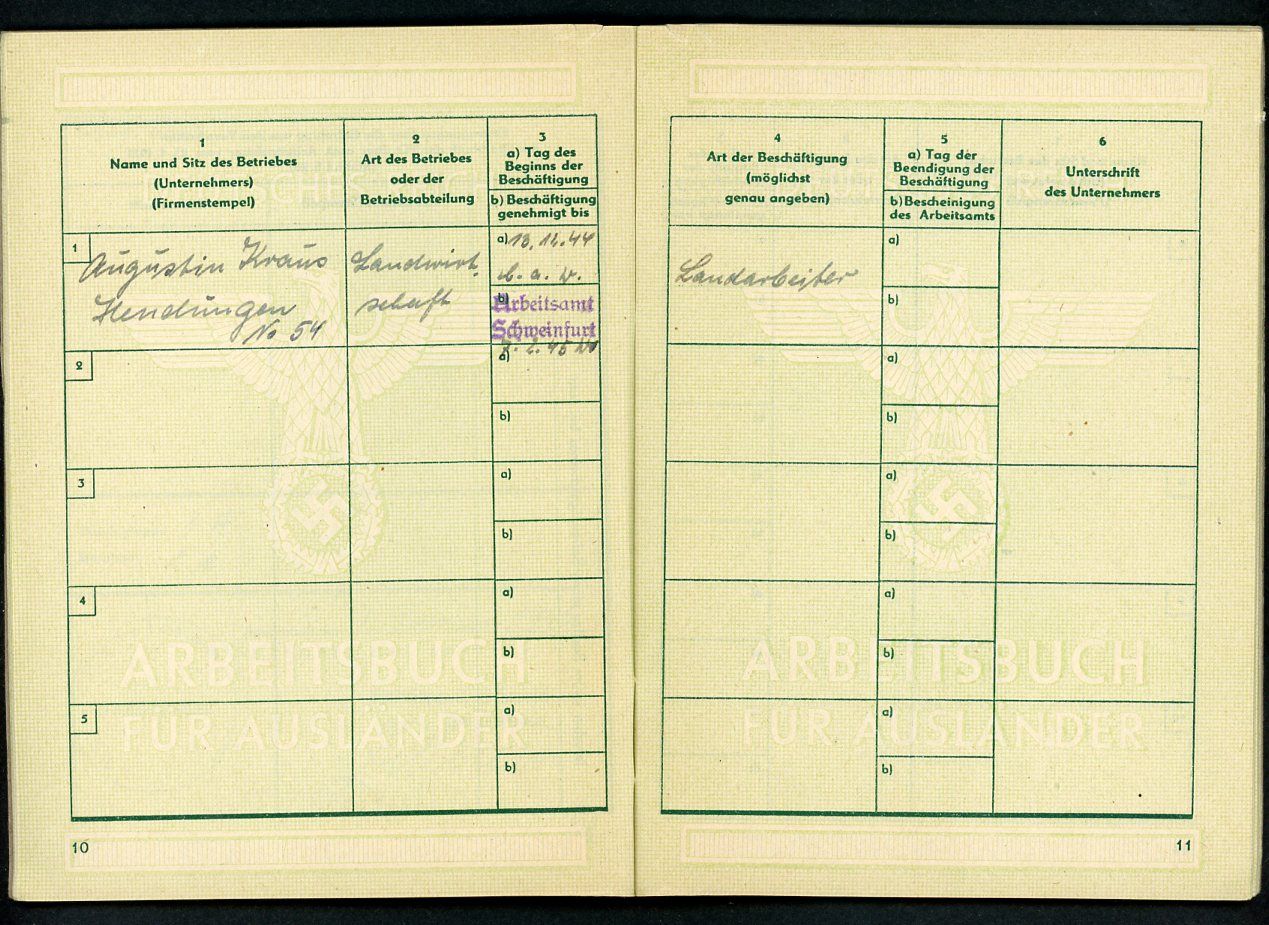 1
Name und Sitz des Betriebes
(Unternehmers)
(Firmenstempel)
2
Art des Betriebes
oder der
Betriebsabteilung
3
a) Tag des
Beginns der
Beschäftigung
b) Beschäftigung
genehmigt bis
1
Augustin Kraus
Hendungen
No 54
Landwirt-
schaft
a) 13.12.44
b. a. w.
b)
Arbeitsamt
Schweinfurt
2
a)
b)
3
a)
b)
4
a)
b)
5
a)
b)
ARBEITSBUCH
FÜR AUSLÄNDER
10
4
Art der Beschäftigung
(möglichst
genau angeben)
5
a) Tag der
Beendigung der
Beschäftigung
b) Bescheinigung
des Arbeitsamts
6
Unterschrift
des Unternehmers
Landarbeiter
a)
b)
a)
b)
a)
b)
a)
b)
a)
b)
ARBEITSBUCH
FÜR AUSLÄNDER
11